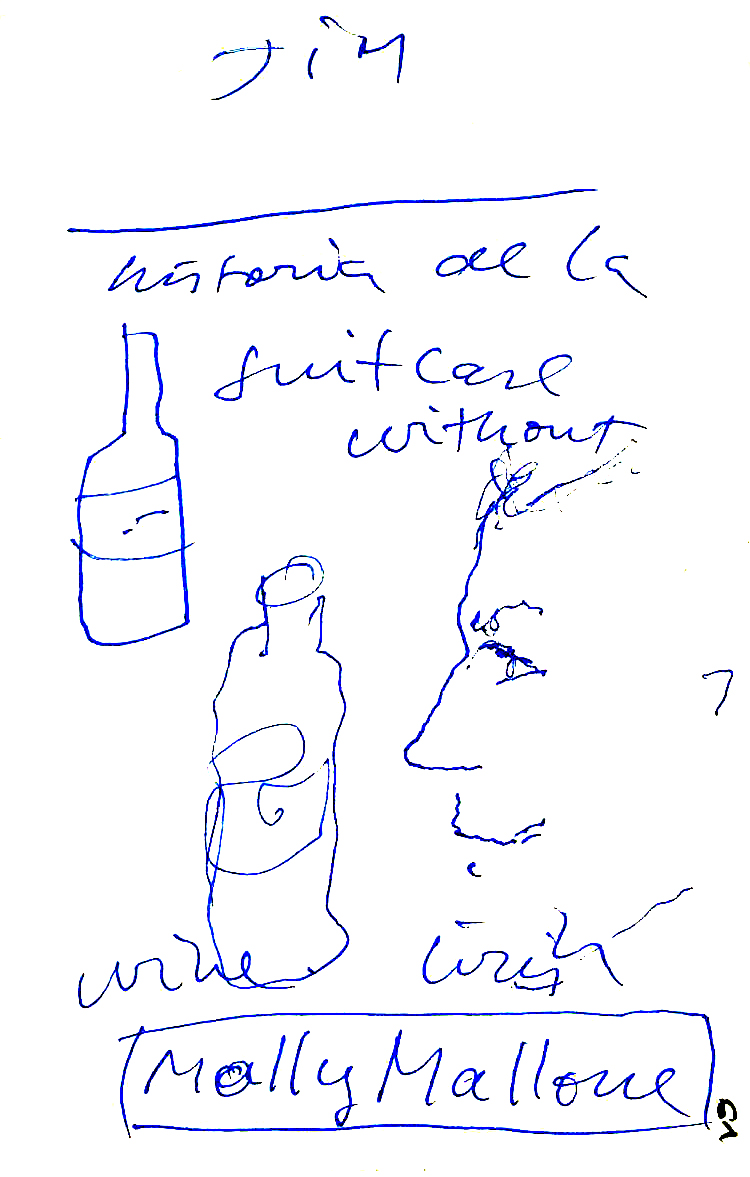 Jim
historia de la
suitcase
without
wine
Irish
Molly Mallone